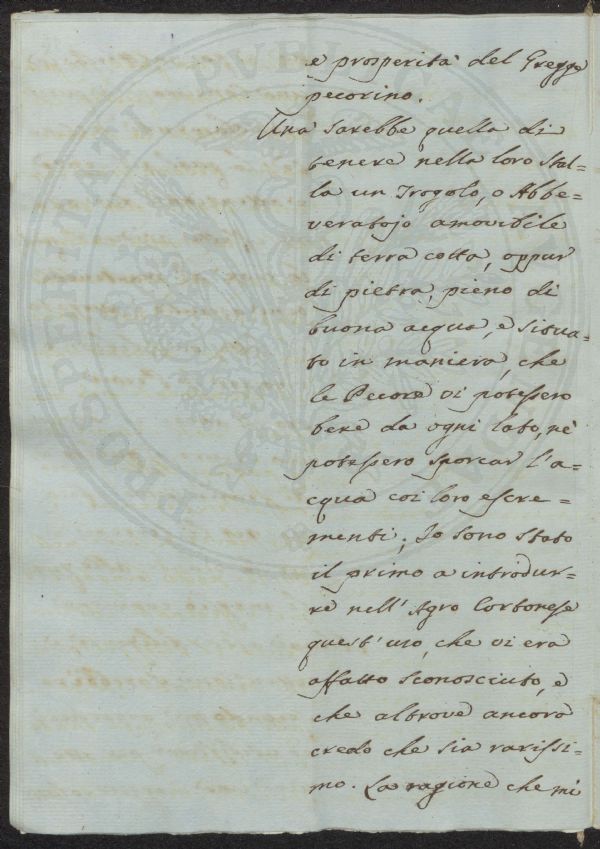 e prosperità del Gregge
pecorino.
Una sarebbe quella di
tenere nella loro stal=
la un Trogolo, o Abbe=
veratojo amovibile
di terra cotta, oppur
di pietra, pieno di
buona acqua, e situa=
to in maniera, che
le Pecore vi potessero
bere da ogni lato, nè
potessero sporcar l'a=
cqua coi loro escre=
menti; Io sono stato
il primo a introdur=
re nell' Agro Cortonese
quest' uso, che vi era
affatto sconosciuto, e
che altrove ancora
credo che sia rarissi=
mo. La ragione che mi
PROSPERITATI PVBLICAE